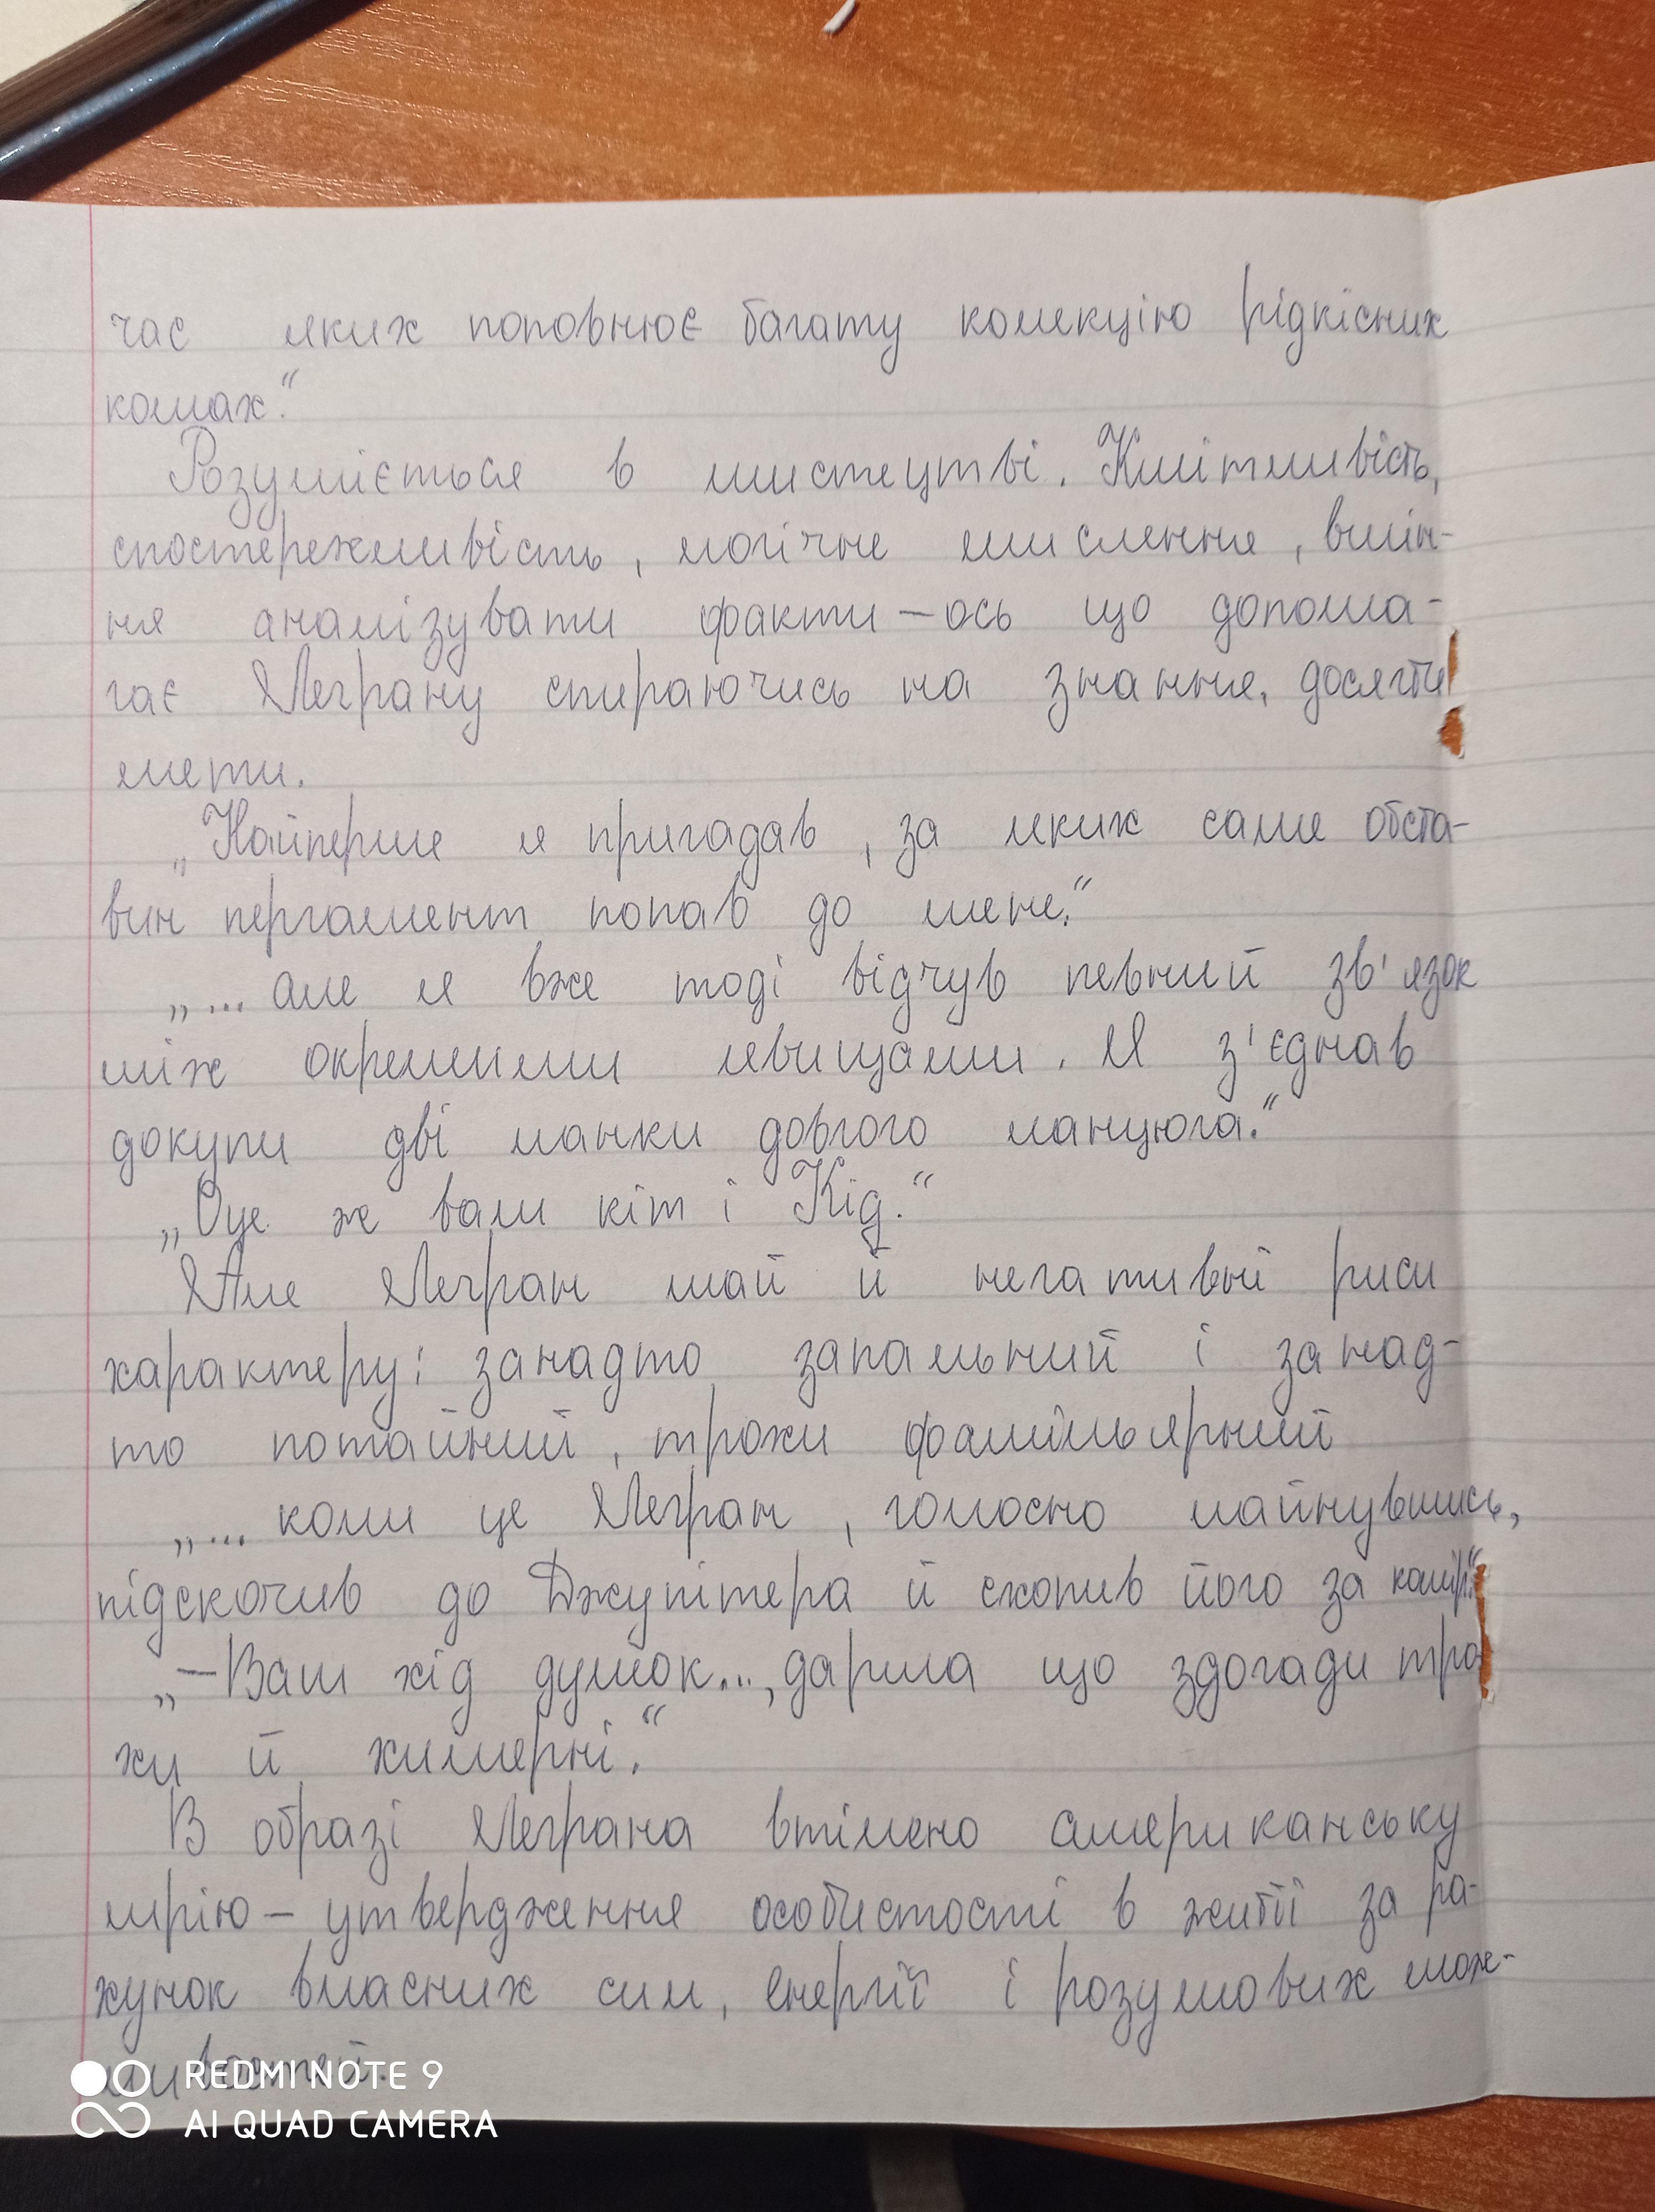 час яких поповнює багату колекцію рідкісних
комах."
Розуміється в мистецтві. Кмітливість,
спостережливість, логічне мислення, вмін-
ня аналізувати факти – ось що допома-
гає Леграну спираючись на знання, досягти
мети.
„Найперше я пригадав, за яких саме обста-
вин пергамент попав до мене."
„... але я вже тоді відчув певний зв'язок
між окремими явищами. Я з'єднав
докупи дві ланки довгого ланцюга."
„Оце ж вам кіт і Кід."
Але Легран май й негативні риси
характеру: занадто запальний і занад-
то потайний, трохи фамільярний
„... коли це Легран, голосно лайнувшись,
підскочив до Джупітера й схопив його за комір."
„– Ваш хід думок..., дарма що здогади тро
хи й химерні."
В образі Леграна втілено американську
мрію – утвердження особистості в житті за ра-
хунок власних сил, енергії і розумових мож-
ливостей.
REDMI NOTE 9
AI QUAD CAMERA